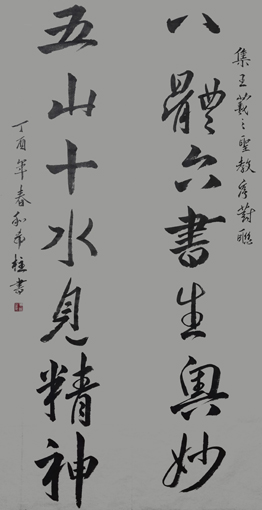 集王羲之聖教序對聯
八體六書生奧妙
五山十水見精神
丁酉年春和希柱書